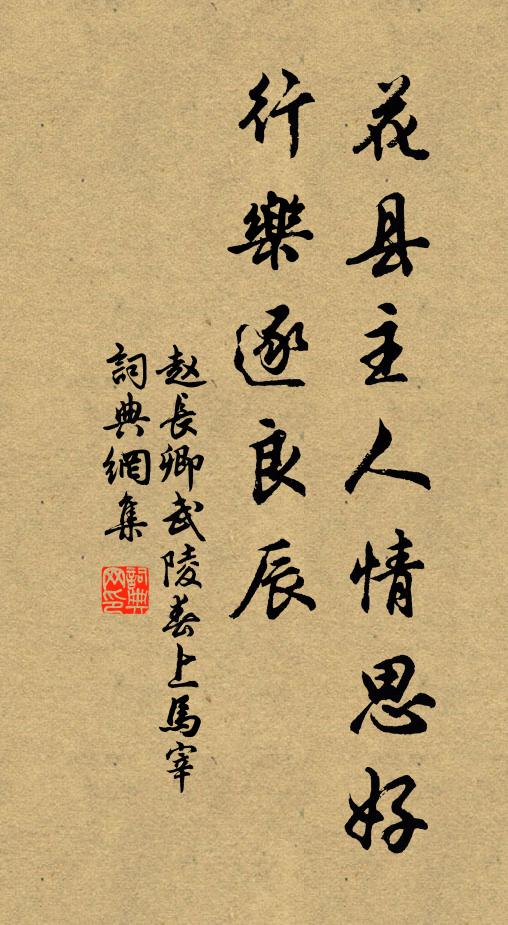 花县主人情思好
行樂逐良辰
赵長卿武陵春上馬宰
詞典網集
詞典网印